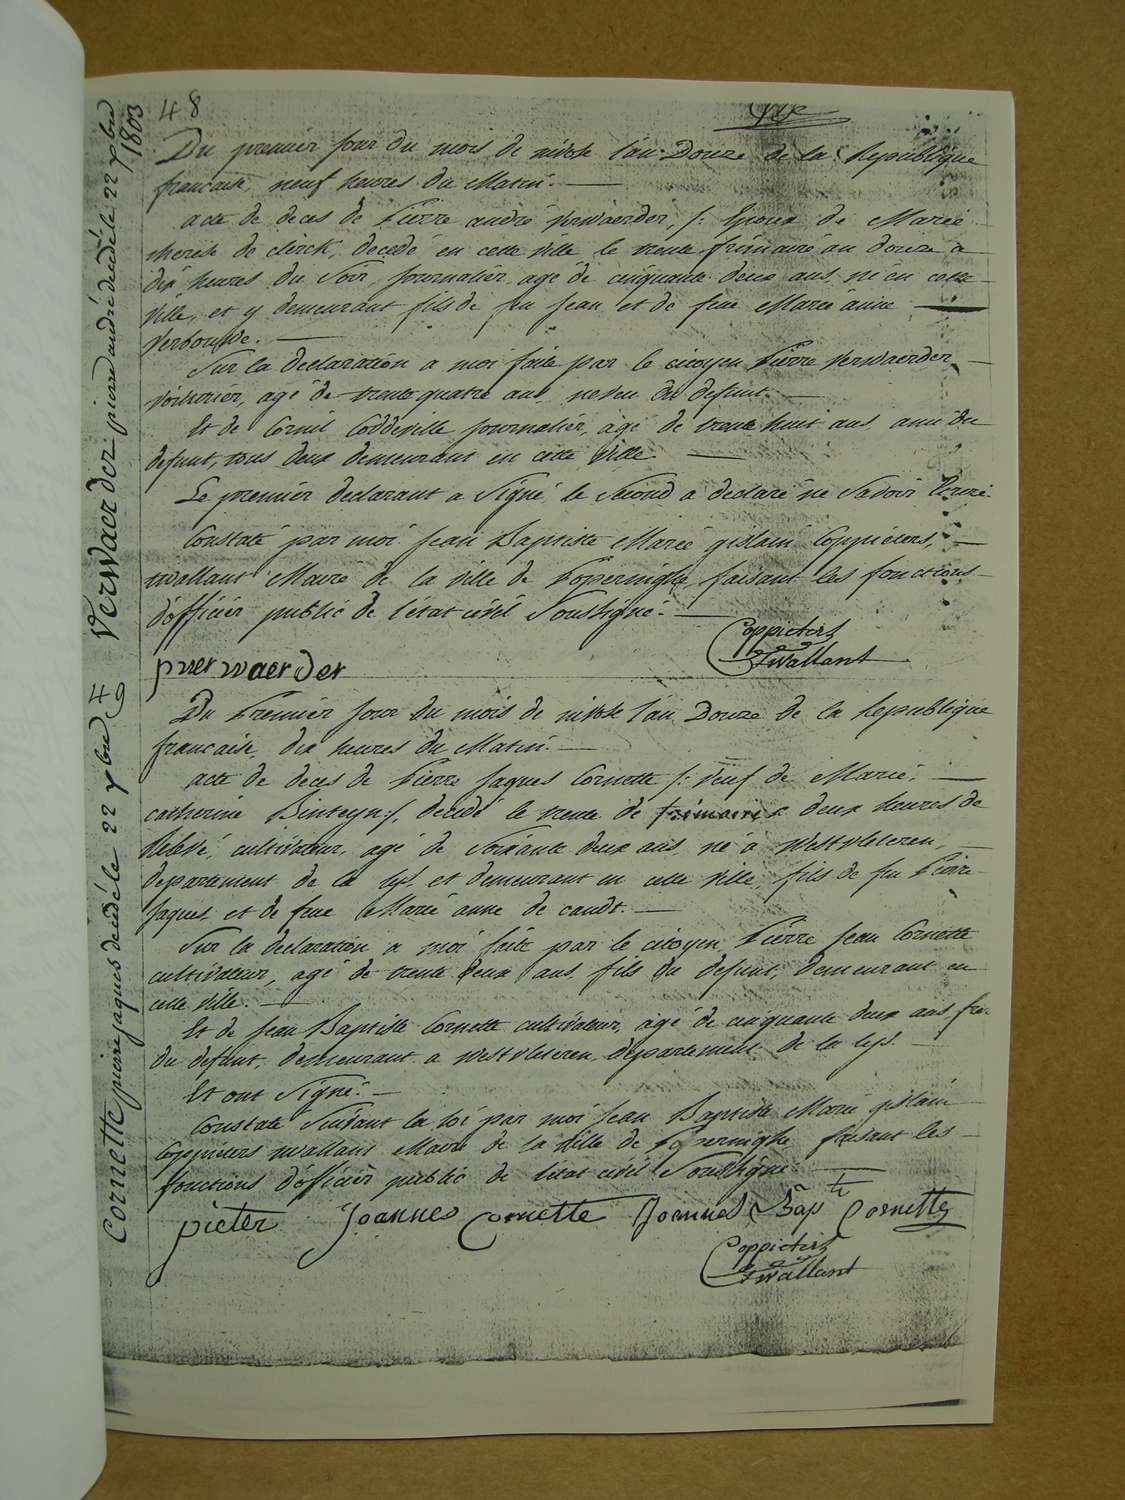 48
Du premier jour du mois de nivose l'an Douze de la Republique
francaise, neuf heures du Matin.
acte de deces de Pierre andré verwaerder, /: Epoux de Marie
therese de clerck, decedé en cette ville le trente frimaire an douze a
dix heures du Soir, journalier, agé de cinquante deux ans, né en cette
ville, et y demeurant fils de feu jean et de feue Marie anne
verbouwe.
Sur la declaration a moi faite par le citoyen Pierre verwaerder
voiturier, agé de trente quatre ans, neveu du defunt.
Et de Cornil Coddeville journalier, agé de trente huit ans, ami du
defunt, tous deux demeurant en cette ville.
Le premier declarant a Signé le Second a declaré ne Savoir Ecrire.
Constaté par moi jean Baptiste Marie gislain Coppieters,
twallant Maire de la ville de Poperinghe, faisant les fonctions
d'officier public de l'état civil Soussigné.
Coppieters
Twallant
pverwaerder
Du Premier jour du mois de nivose l'an Douze de la Republique
francaise, dix heures du Matin.
acte de deces de Pierre jaques Cornette /: veuf de Marie
catherine Binteyn :/, decedé le trente de frimaire a deux heures de
relevé, cultivateur, agé de Soixante deux ans, né à westvleteren,
departement de la lys, et demeurant en cette ville, fils de feu Pierre
jaques, et de feue Marie anne de candt.
Sur la declaration a moi faite par le citoyen Pierre jean Cornette
cultivateur, agé de trente deux ans, fils du defunt, demeurant en
cette ville.
Et de jean Baptiste Cornette cultivateur, agé de cinquante deux ans,
du defunt, demeurant a westvleteren, departement de la lys.
Et ont Signé.
Constaté Suivant la loi par moi jean Baptiste Marie gislain
Coppieters twallant Maire de la ville de Poperinghe faisant les
fonctions d'officier public de l'etat civil Soussigné.
pieter Joannes Cornette Joannes Bap te Cornette
Coppieters
Twallant
Verwaerder pierre andré decedé le 22 xbre 1803
49
Cornette pierre jaques decedé le 22 xbre